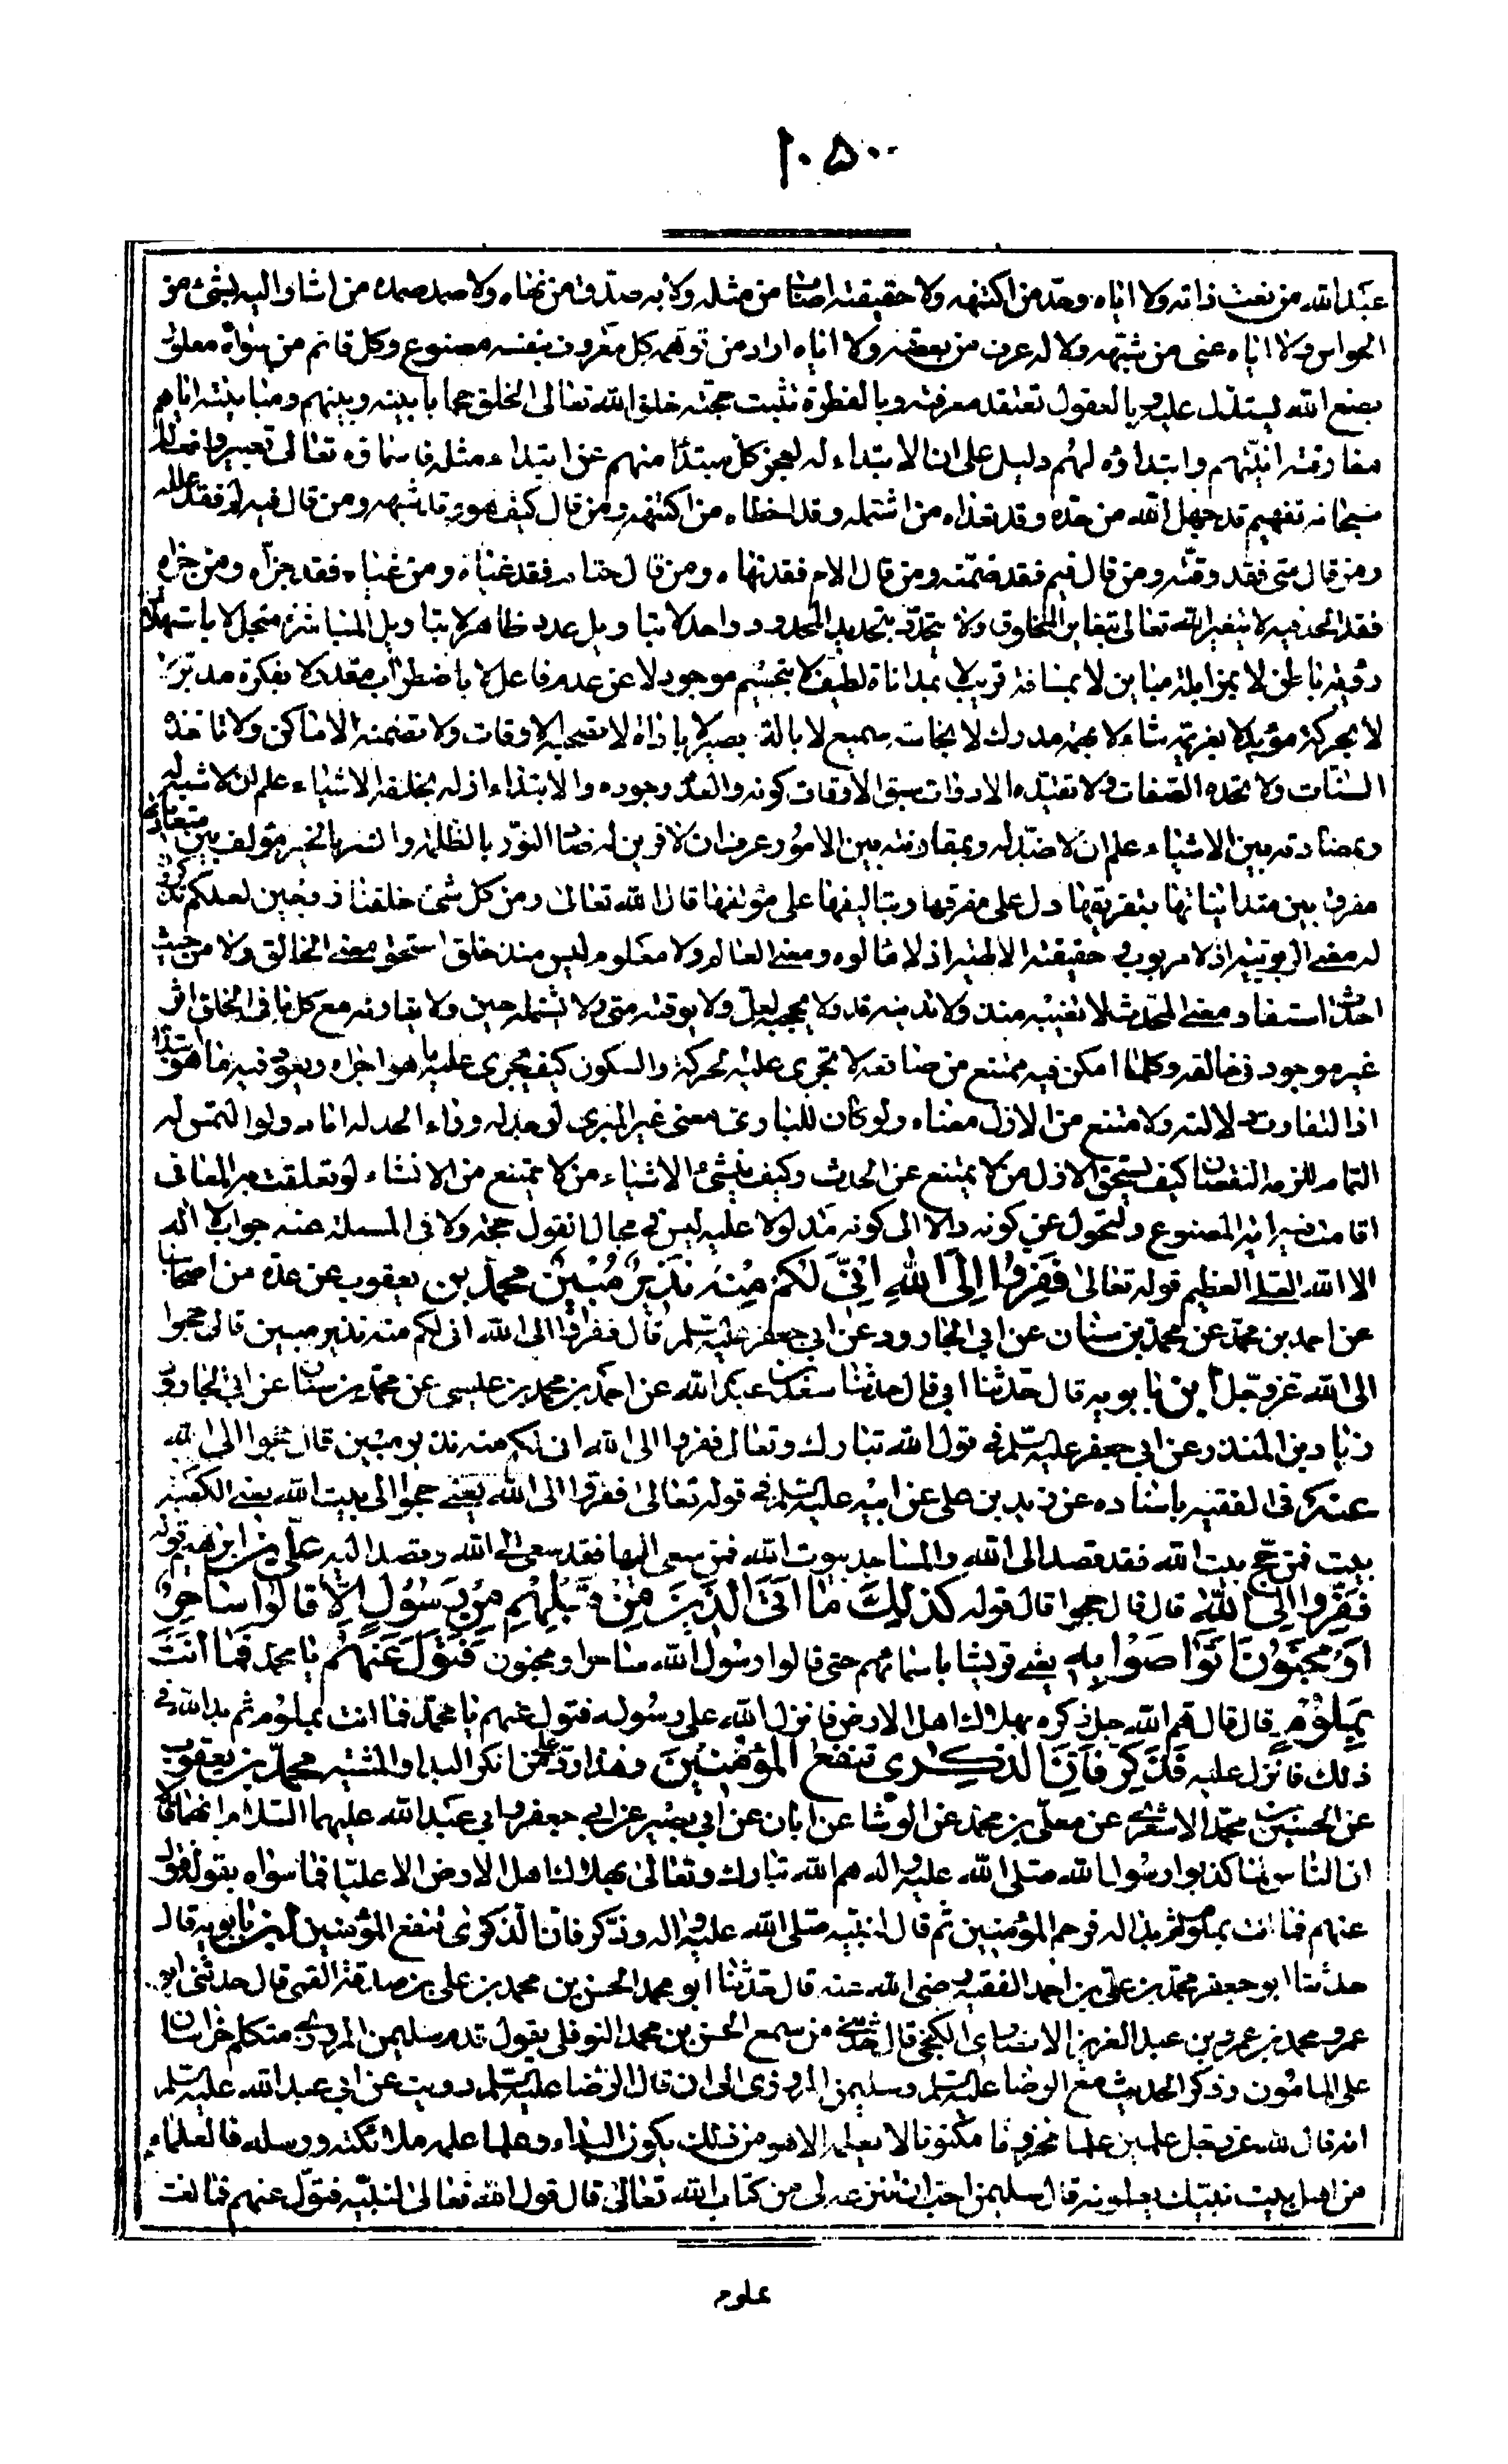 ١٠٥٠
عبد الله من نعت ذاته ولا اياه وحد من اكتنهه ولا حقيقته اصاب من مثله ولا به صدق من نهاه ولا صمد صمده من اشار اليه بشئ من
الحواس ولا اياه عنى من شبهه ولا له عرف من بعضه ولا اياه اراد من توهمه كل معروف بنفسه مصنوع وكل قائم من سواه معلول
بصنع الله يستدل عليه وبالعقول تعتقد معرفته وبالفطرة تثبت حجته خلق الله تعالى الخلق حجابا بينه وبينهم ومباينته اياهم
مفارقته انيتهم وابتداؤه لهم دليل على ان لا ابتداء له لعجز كل مبتدا منهم عن ابتداء مثله فاسماؤه تعالى تعبير وافعاله
سبحانه تفهيم قد جهل الله من حده وقد تعداه من اشتمله وقد اخطاه من اكتنهه ومن قال كيف هو فقد شبهه ومن قال فيه لم فقد علله
ومن قال متى فقد وقته ومن قال فيم فقد ضمنه ومن قال الام فقد نهاه ومن قال حتام فقد غياه ومن غياه فقد جزاه ومن جزاه
فقد الحد فيه لا يتغير الله تعالى بتغاير المخلوق ولا يتحدد بتحديد المحدود واحد لا بتاويل عدد ظاهر لا بتاويل المباشرة متجل لا باستهلال
رؤية باطن لا بمزايلة مباين لا بمسافة قريب لا بمداناة لطيف لا بتجسيم موجود لا عن عدم فاعل لا باضطراب مقدر لا بفكرة مدبر
لا بحركة مريد لا بعزيمة شاء لا بهمة مدرك لا بحاسة سميع لا بالة بصير لا باداة لا تصحبه الاوقات ولا تضمنه الاماكن ولا تاخذه
السنات ولا تحده الصفات ولا تقيده الادوات سبق الاوقات كونه والعدم وجوده والابتداء ازله بخلقه الاشياء علم ان لا شبه له
وبمضادته بين الاشياء علم ان لا ضد له وبمقارنته بين الامور عرف ان لا قرين له ضاد النور بالظلمة والشر بالخير مؤلف بين متعاديها
مفرق بين متدانياتها بتفريقها دل على مفرقها وبتاليفها على مؤلفها قال الله تعالى ومن كل شئ خلقنا زوجين لعلكم تذكرون
له معنى الربوبية اذ لا مربوب وحقيقة الالهية اذ لا مالوه ومعنى العالم ولا معلوم ليس منذ خلق استحق معنى الخالق ولا من حيث
احدث استفاد معنى المحدث لا تغيبه منذ ولا تدنيه قد ولا يحجبه لعل ولا يوقته متى ولا يشتمله حين ولا يقارنه مع كل ما في الخلق اثر
غير موجود في خالقه وكلما امكن فيه ممتنع من صانعه لا تجري عليه الحركة والسكون كيف يجري عليه ما هو اجراه ويعود فيه ما هو ابتدا
اذا لتفاوتت دلالته ولامتنع من الازل معناه ولو كان للباري معنى غير المبري لو حد له وراء لحد له امام ولو التمس له
التمام للزمه النقصان كيف يستحق الازل من لا يمتنع عن الحدث وكيف ينشئ الاشياء من لا يمتنع من الانشاء لو تعلقت به المعاني
لقامت فيه اية المصنوع ولتحول عن كونه دالا الى كونه مدلولا عليه ليس في مجال القول حجة ولا في المسئلة عنه جواب لا اله
الا الله العلي العظيم قوله تعالى فَفِرُّوا إِلَى اللهِ إِنِّي لَكُمْ مِنْهُ نَذِيرٌ مُبِينٌ محمد بن يعقوب عن عدة من اصحابنا
عن احمد بن محمد عن محمد بن سنان عن ابي الجارود عن ابي جعفر عليه السلم قال ففروا الى الله اني لكم منه نذير مبين قال حجوا
الى الله عز وجل ابن بابويه قال حدثنا ابي قال حدثنا سعد بن عبد الله عن احمد بن محمد بن عيسى عن محمد بن سنان عن ابي الجارود
زياد بن المنذر عن ابي جعفر عليه السلم في قول الله تبارك وتعالى ففروا الى الله اني لكم منه نذير مبين قال حجوا الى الله
عنه في الفقيه باسناده عن زيد بن علي عن ابيه عليه السلم في قوله تعالى ففروا الى الله يعني حجوا الى بيت الله يعني الكعبة
بيت فمن حج بيت الله فقد قصد الى الله والمساجد بيوت الله فمن سعى اليها فقد سعى الى الله وقصد اليه علي بن ابرهيم قوله
فَفِرُّوا إِلَى اللهِ قال قال حجوا قال قوله كَذَلِكَ مَا أَتَى الَّذِينَ مِنْ قَبْلِهِمْ مِنْ رَسُولٍ إِلَّا قَالُوا سَاحِرٌ
أَوْ مَجْنُونٌ أَتَوَاصَوْا بِهِ يعني قريشا باسمائهم حتى قالوا رسول الله ساحرا ومجنون فَتَوَلَّ عَنْهُمْ يا محمد فَمَا أَنْتَ
بِمَلُومٍ قال قال هم الله جل ذكره بهلاك اهل الارض فانزل الله على رسوله فتول عنهم يا محمد فما انت بملوم ثم بدا لله في
ذلك فانزل عليه فَذَكِّرْ فَإِنَّ الذِّكْرَى تَنْفَعُ الْمُؤْمِنِينَ وهذا رد على من انكر البداء والمشية محمد بن يعقوب
عن الحسين بن محمد الاشعري عن معلى بن محمد عن الوشا عن ابان عن ابي بصير عن ابي جعفر وابي عبد الله عليهما السلام انهما قالا
ان الناس لما كذبوا رسول الله صلى الله عليه واله هم الله تبارك وتعالى بهلاك اهل الارض الا عليا فما سواه بقوله فتول
عنهم فما انت بملوم ثم بدا له فرحم المؤمنين ثم قال لنبيه صلى الله عليه واله وذكر فان الذكرى تنفع المؤمنين ابن بابويه قال
حدثنا ابو جعفر محمد بن علي بن احمد الفقيه رضي الله عنه قال حدثنا ابو محمد الحسن بن محمد بن علي بن صدقة القمي قال حدثني ابو
عمرو محمد بن عمر بن عبد العزيز الانصاري الكجي قال حدثني من سمع الحسن بن محمد النوفلي يقول قدم سليمن المروزي متكلم خراسان
على المامون وذكر الحديث مع الرضا عليه السلم وسليمن المروزي الى ان قال الرضا عليه السلم رويت عن ابي عبد الله عليه السلم
انه قال لله عز وجل علمين علما مخزونا مكنونا لا يعلمه الا هو من ذلك يكون البداء وعلما علمه ملائكته ورسله فالعلماء
من اهل بيت نبيك يعلمونه قال سليمن احب ان تنزعه لي من كتاب الله تعالى قال قول الله تعالى لنبيه فتول عنهم فما انت
علوم